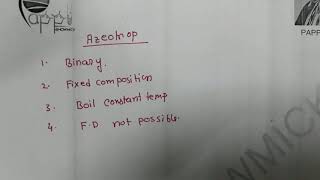 Pappi
PAPP
Azeotrop
1. Binary.
2. Fixed composition
3. Boil constant temp
4. F.D not possible.
WMICK